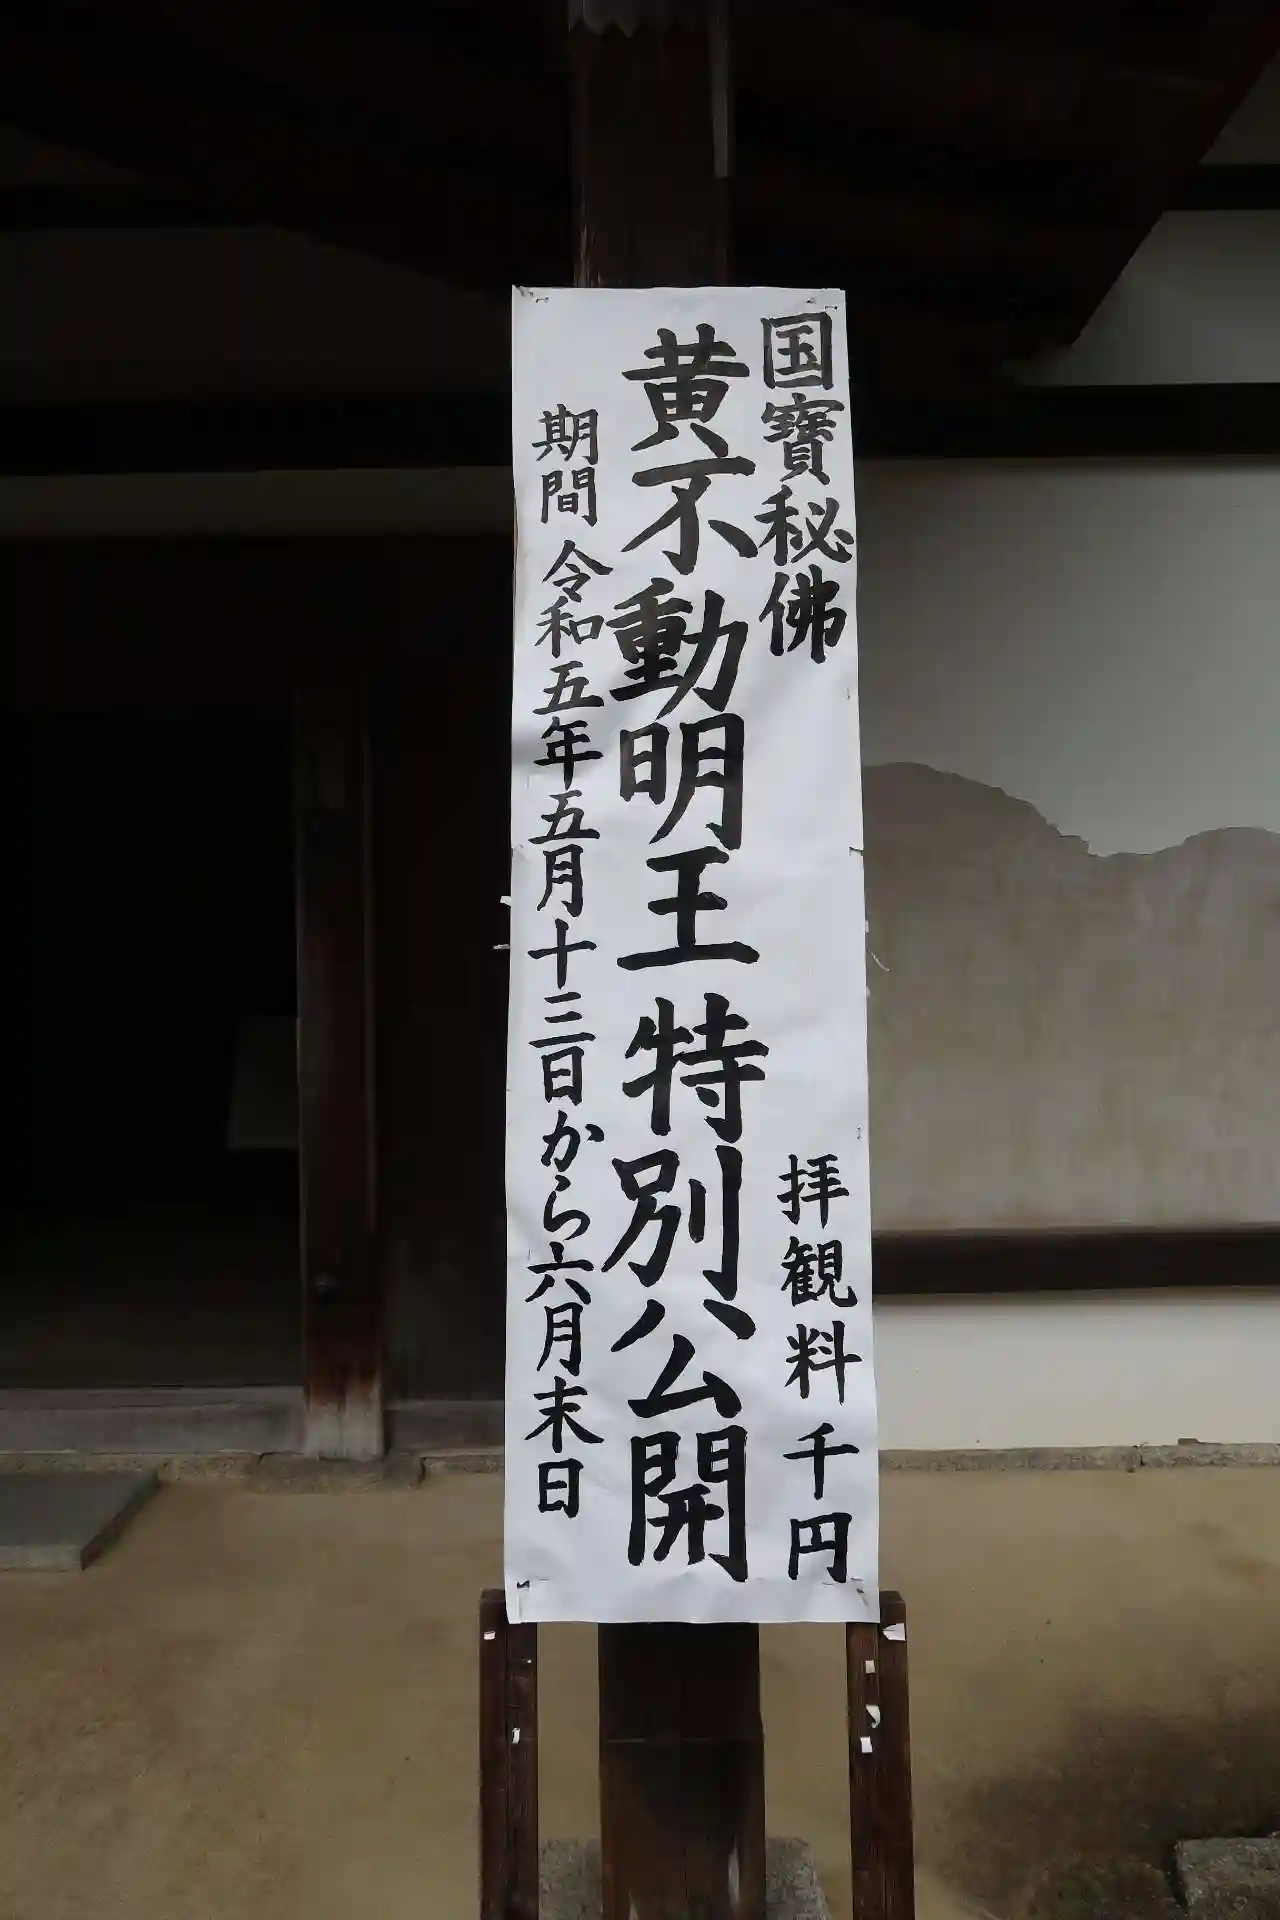 国寶秘佛
拝観料 千円
黄不動明王 特別公開
期間 令和五年五月十三日から六月末日